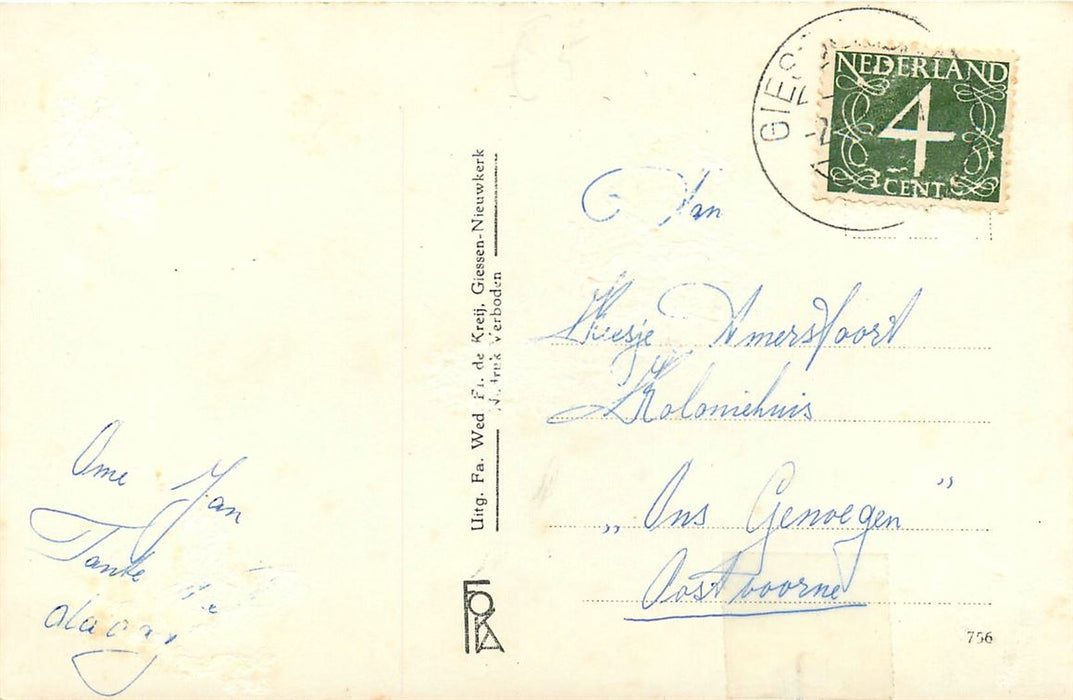 Ome Jan
Tante
Uitg. Fa. Wed Fr. de Kreij, Giessen-Nieuwkerk
Nadruk Verboden
FOKA
GIES
NEDERLAND
4
CENT
Aan
Keesje Amersfoort
Koloniehuis
„ Ons Genoegen ”
Oostvoorne
756